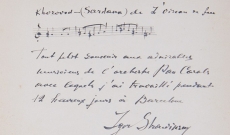 Khorovod — (Sardana) de L'Oiseau de feu
Tout petit souvenir aux admirables
musiciens de l'orchestre Pau Casals
avec lesquels j'ai travaillé pendant
12 heureux jours à Barcelone
Igor Strawinsky